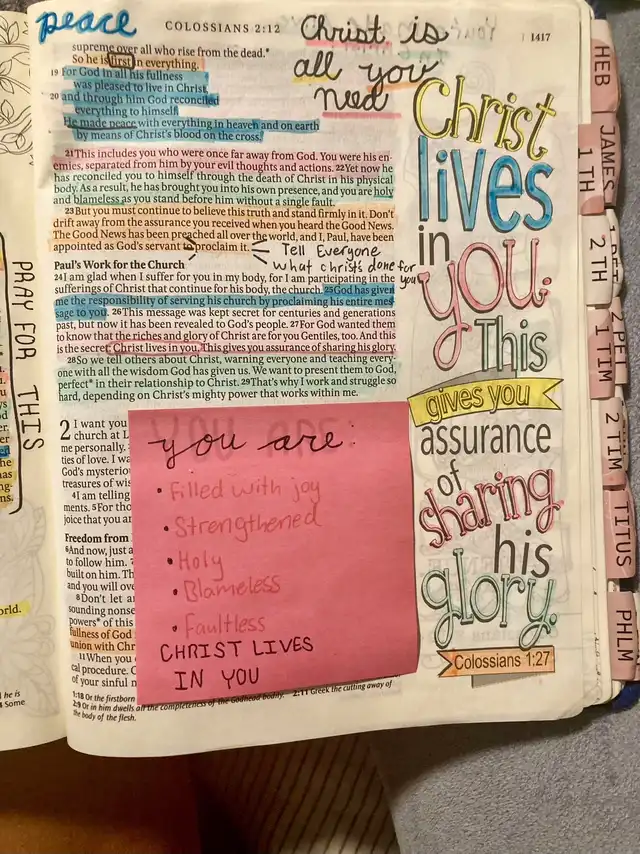 peace
COLOSSIANS 2:12
1417
Christ is
all you
need
supreme over all who rise from the dead.*
So he is first in everything.
19 For God in all his fullness
was pleased to live in Christ,
20 and through him God reconciled
everything to himself.
He made peace with everything in heaven and on earth
by means of Christ's blood on the cross.
21 This includes you who were once far away from God. You were his en-
emies, separated from him by your evil thoughts and actions. 22 Yet now he
has reconciled you to himself through the death of Christ in his physical
body. As a result, he has brought you into his own presence, and you are holy
and blameless as you stand before him without a single fault.
23 But you must continue to believe this truth and stand firmly in it. Don't
drift away from the assurance you received when you heard the Good News.
The Good News has been preached all over the world, and I, Paul, have been
appointed as God's servant to proclaim it.
Tell Everyone
what christs done for
you
Paul's Work for the Church
24 I am glad when I suffer for you in my body, for I am participating in the
sufferings of Christ that continue for his body, the church. 25 God has given
me the responsibility of serving his church by proclaiming his entire mes-
sage to you. 26 This message was kept secret for centuries and generations
past, but now it has been revealed to God's people. 27 For God wanted them
to know that the riches and glory of Christ are for you Gentiles, too. And this
is the secret: Christ lives in you. This gives you assurance of sharing his glory.
28 So we tell others about Christ, warning everyone and teaching every-
one with all the wisdom God has given us. We want to present them to God,
perfect* in their relationship to Christ. 29 That's why I work and struggle so
hard, depending on Christ's mighty power that works within me.
2 I want you
church at L
me personally.
ties of love. I wa
God's mysterio
treasures of wis
4 I am telling
ments. 5 For tho
joice that you ar
Freedom from
6 And now, just a
to follow him.
built on him. Th
and you will ove
8 Don't let an
sounding nonse
powers* of this
fullness of God
union with Chri
11 When you
cal procedure. C
of your sinful n
1:18 Or the firstborn
2:9 Or in him dwells all the completeness of the Godhead bodily. 2:11 Greek the cutting away of
the body of the flesh.
you are:
• Filled with joy
• Strengthened
• Holy
• Blameless
• Faultless
CHRIST LIVES
IN YOU
Christ
lives
in
you.
This
gives you
assurance
of
sharing
his
glory.
Colossians 1:27
PRAY FOR THIS
world.
he is
Some
HEB
JAMES
1 TH
2 TH
2 PET
1 TIM
2 TIM
TITUS
PHLM